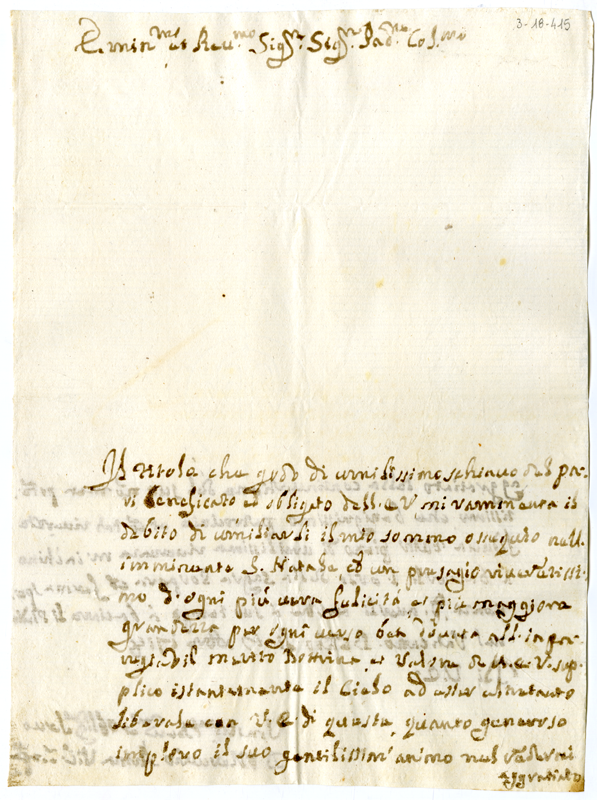 3-18-415
Emin.mo et Reu.mo Sig.r Sig.r Pad.ne Col.mo
Il titolo che godo di umilissimo schiauo del pa-
ri beneficato ed obligato dell'E V mi rammenta il
debito di umiliarli il mio sommo ossequio nell'
imminente S. Natale, ed un presagio riueritissi-
mo d'ogni più uera felicità, et più maggiore
grandezza per ogni uerso ben douuta all'impa-
reggiabil merito Dottrina, et Valore de u. E. V. sup-
plico istantemente il Cielo ad esser altretanto
liberale con V. E. di queste, quanto generoso
imploro il suo gentilissim' animo nel uedermi
aggratiato